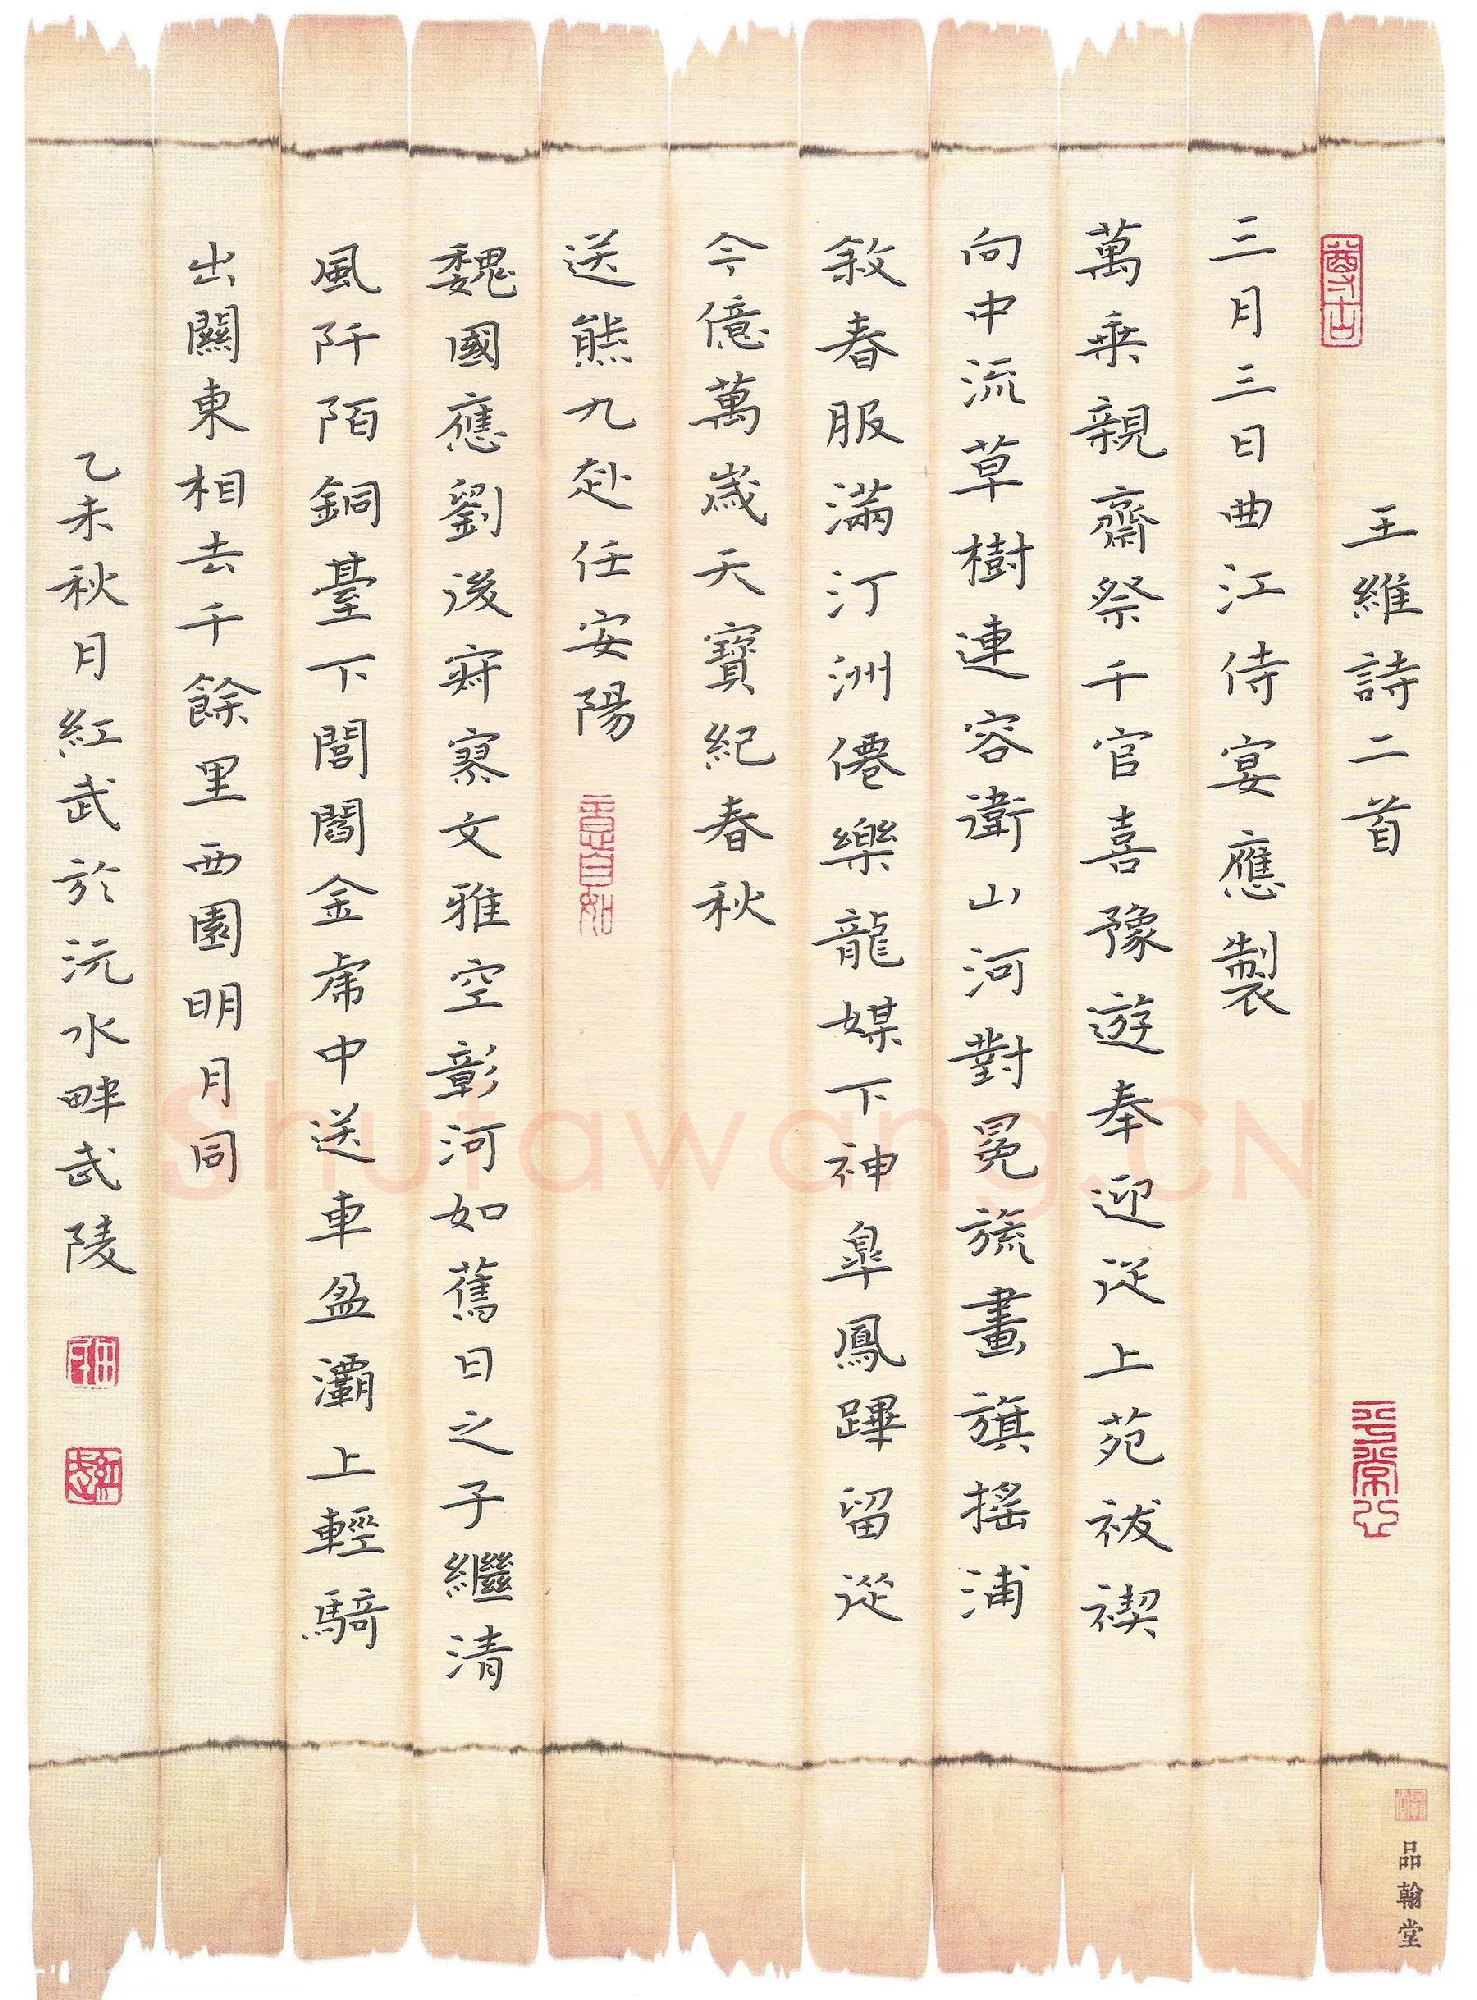 尊古
王維詩二首
平常心
品翰堂
三月三日曲江侍宴應製
萬乘親齋祭千官喜豫遊奉迎從上苑祓禊
向中流草樹連容衛山河對冕旒畫旗搖浦
敘春服滿汀洲僊樂龍媒下神皐鳳蹕留從
今億萬歲天寶紀春秋
送熊九赴任安陽
魏國應劉後寂寥文雅空彰河如舊日之子繼清
風阡陌銅臺下閭閻金虎中送車盈灞上輕騎
出關東相去千餘里西園明月同
乙未秋月紅武於沅水畔武陵
紅武
Shufawang.CN